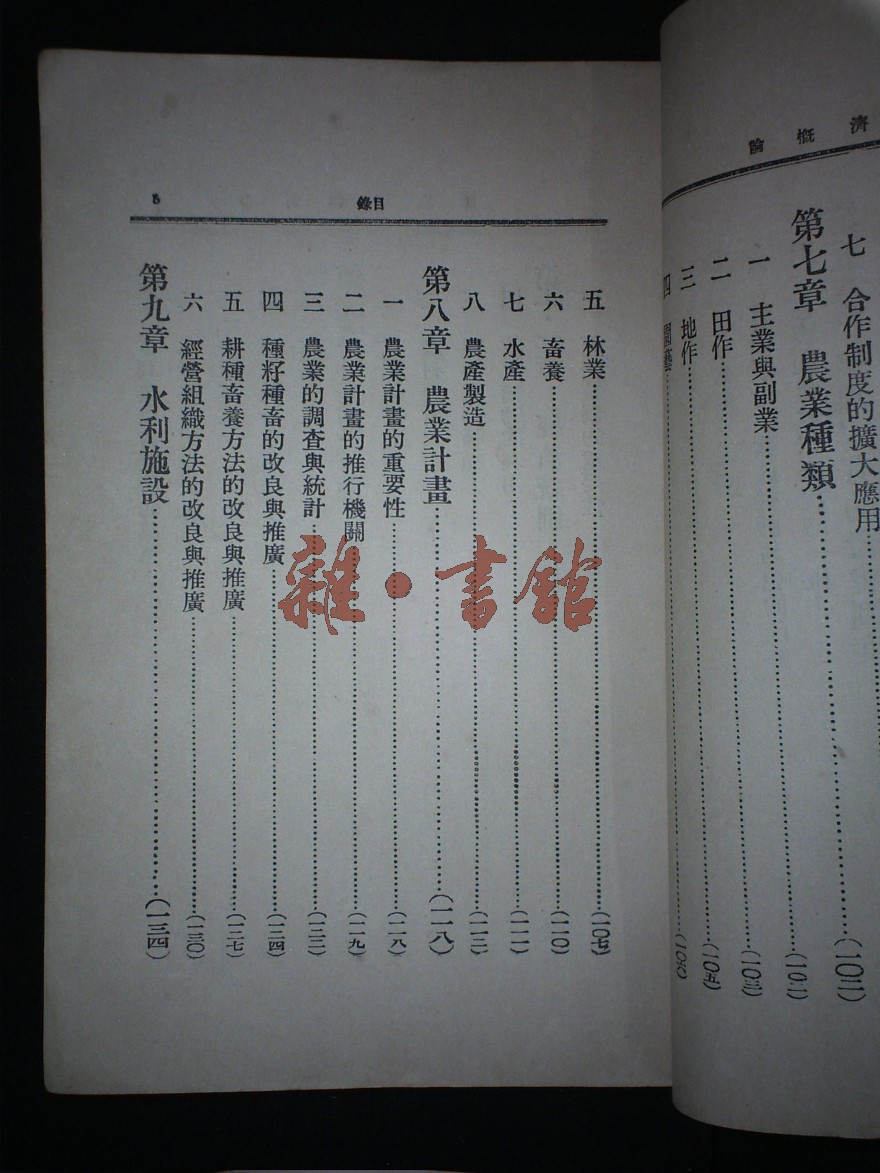 濟概論
七　合作制度的擴大應用
第七章　農業種類……(一〇二)
一　主業與副業……(一〇二)
二　田作……(一〇三)
三　地作……(一〇五)
四　園藝……(一〇六)
目錄　5
五　林業……(一〇七)
六　畜養……(一一〇)
七　水產……(一一一)
八　農產製造……(一一二)
第八章　農業計畫……(一一八)
一　農業計畫的重要性……(一一八)
二　農業計畫的推行機關……(一一九)
三　農業的調查與統計……(一二二)
四　種籽種畜的改良與推廣……(一二四)
五　耕種畜養方法的改良與推廣……(一二七)
六　經營組織方法的改良與推廣……(一三〇)
第九章　水利施設……(一三四)
雜·書館